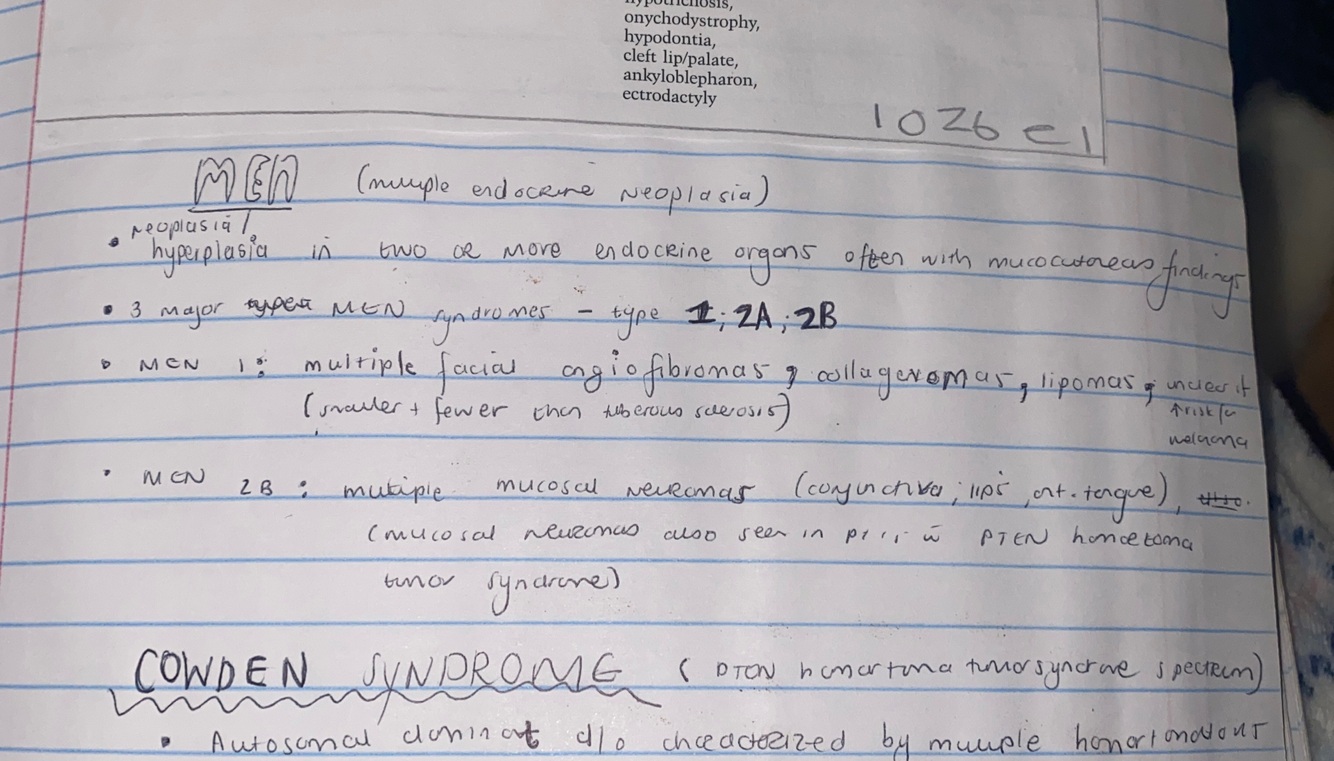 hypotrichosis,
onychodystrophy,
hypodontia,
cleft lip/palate,
ankyloblepharon,
ectrodactyly
1026 e1
MEN (multiple endocrine neoplasia)
neoplasia/
• hyperplasia in two or more endocrine organs often with mucocutaneous findings
• 3 major MEN syndromes - type 1; 2A; 2B
• MEN 1: multiple facial angiofibromas, collagenomas, lipomas, unclear if
(smaller + fewer than tuberous sclerosis) ↑risk for
melanoma
• MEN 2B: multiple mucosal neuromas (conjunctiva; lips, ant. tongue),
(mucosal neuromas also seen in PTEN hamartoma
tumor syndrome)
COWDEN SYNDROME (PTEN hamartoma tumor syndrome spectrum)
• Autosomal dominant d/o characterized by multiple hamartomatous